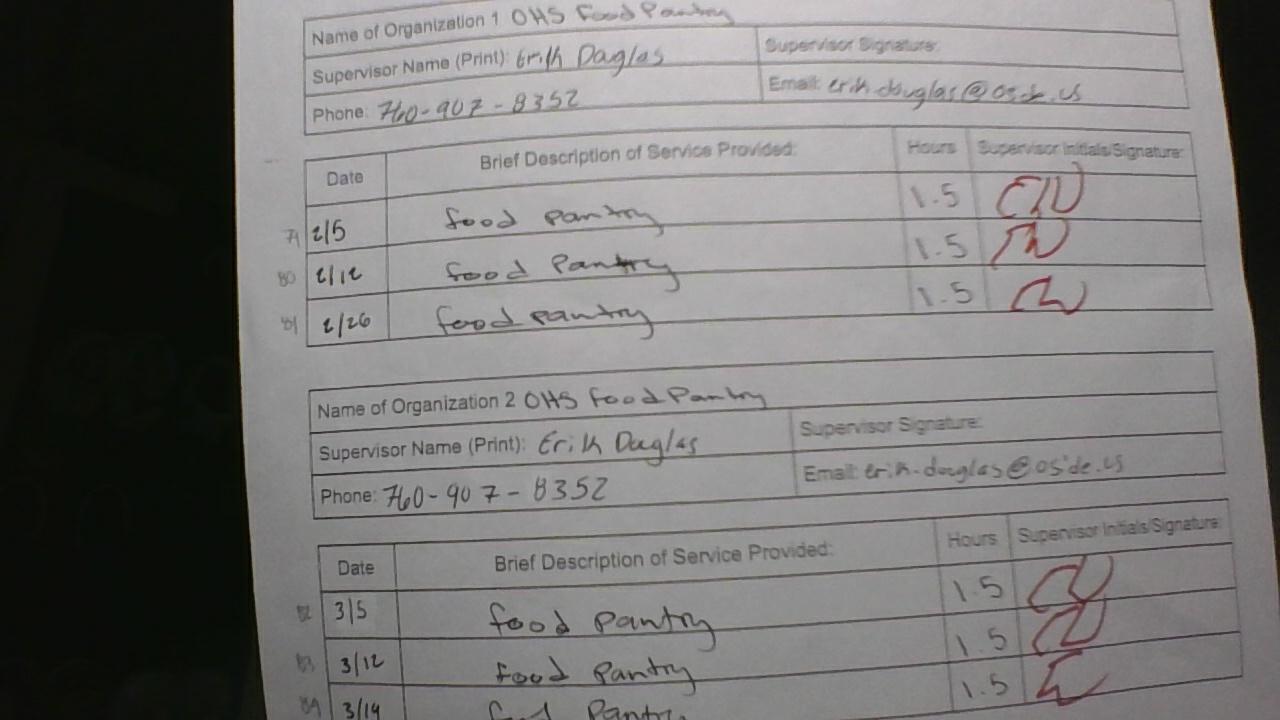 Name of Organization 1 OHS Food Pantry
Supervisor Name (Print): Erik Douglas Supervisor Signature:
Phone: 760-907-8352 Email: erik.douglas@oside.us
Date Brief Description of Service Provided: Hours Supervisor Initials/Signature:
79 2/5 food pantry 1.5
80 2/12 food pantry 1.5
81 2/26 food pantry 1.5
Name of Organization 2 OHS Food Pantry
Supervisor Name (Print): Erik Douglas Supervisor Signature:
Phone: 760-907-8352 Email: erik.douglas@oside.us
Date Brief Description of Service Provided: Hours Supervisor Initials/Signature:
82 3/5 food pantry 1.5
83 3/12 food pantry 1.5
84 3/19 food pantry 1.5